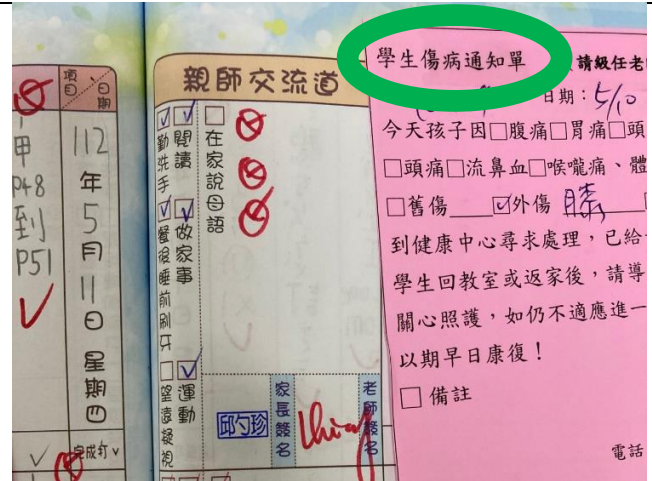 項目
日期
甲
P48
到
P51
112
年
5
月
11
日
星
期
四
完成打✓
親師交流道
☑勤洗手
☑閱讀
□在家說母語
☑餐後睡前刷牙
☑做家事
□望遠凝視
☑運動
邱勻珍
家長簽名
老師簽名
學生傷病通知單
請級任老
日期：5/10
今天孩子因□腹痛□胃痛□頭
□頭痛□流鼻血□喉嚨痛、體
□舊傷____☑外傷 膝
到健康中心尋求處理，已給
學生回教室或返家後，請導
關心照護，如仍不適應進一
以期早日康復！
□備註
電話